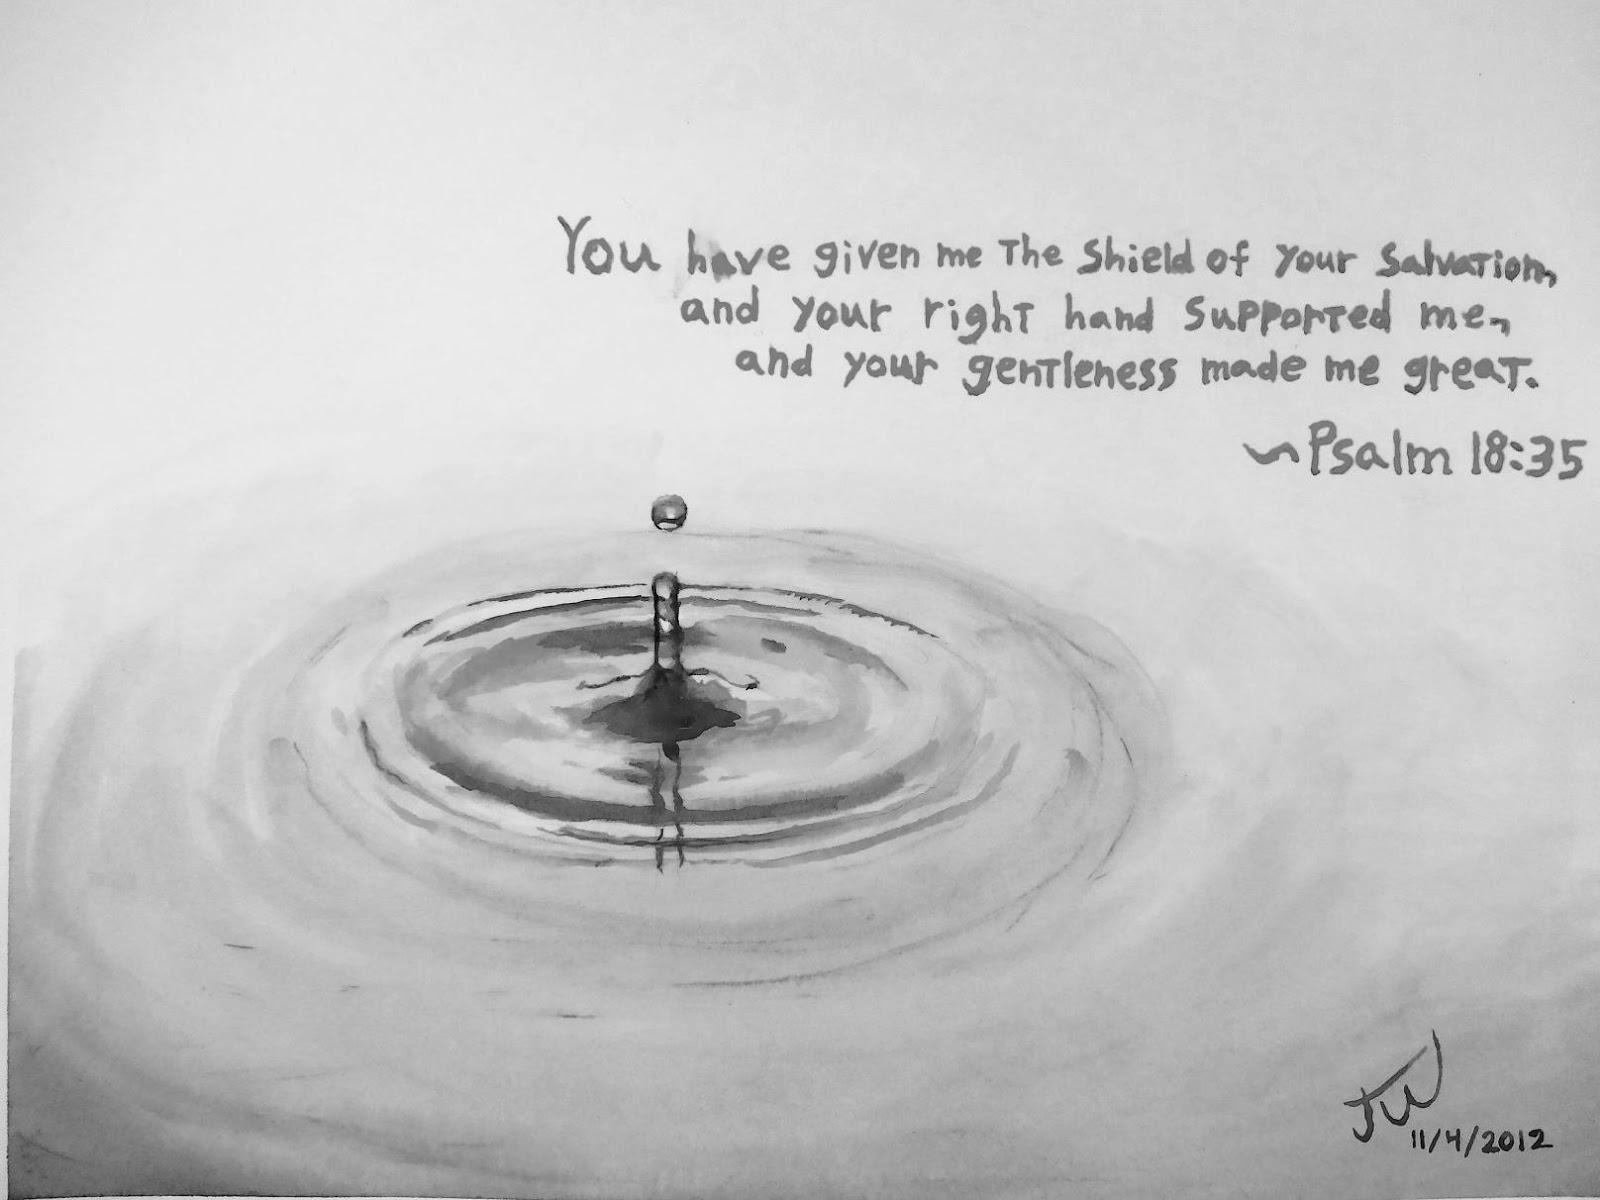 You have given me the shield of your salvation,
and your right hand supported me,
and your gentleness made me great.
~Psalm 18:35
JW
11/4/2012